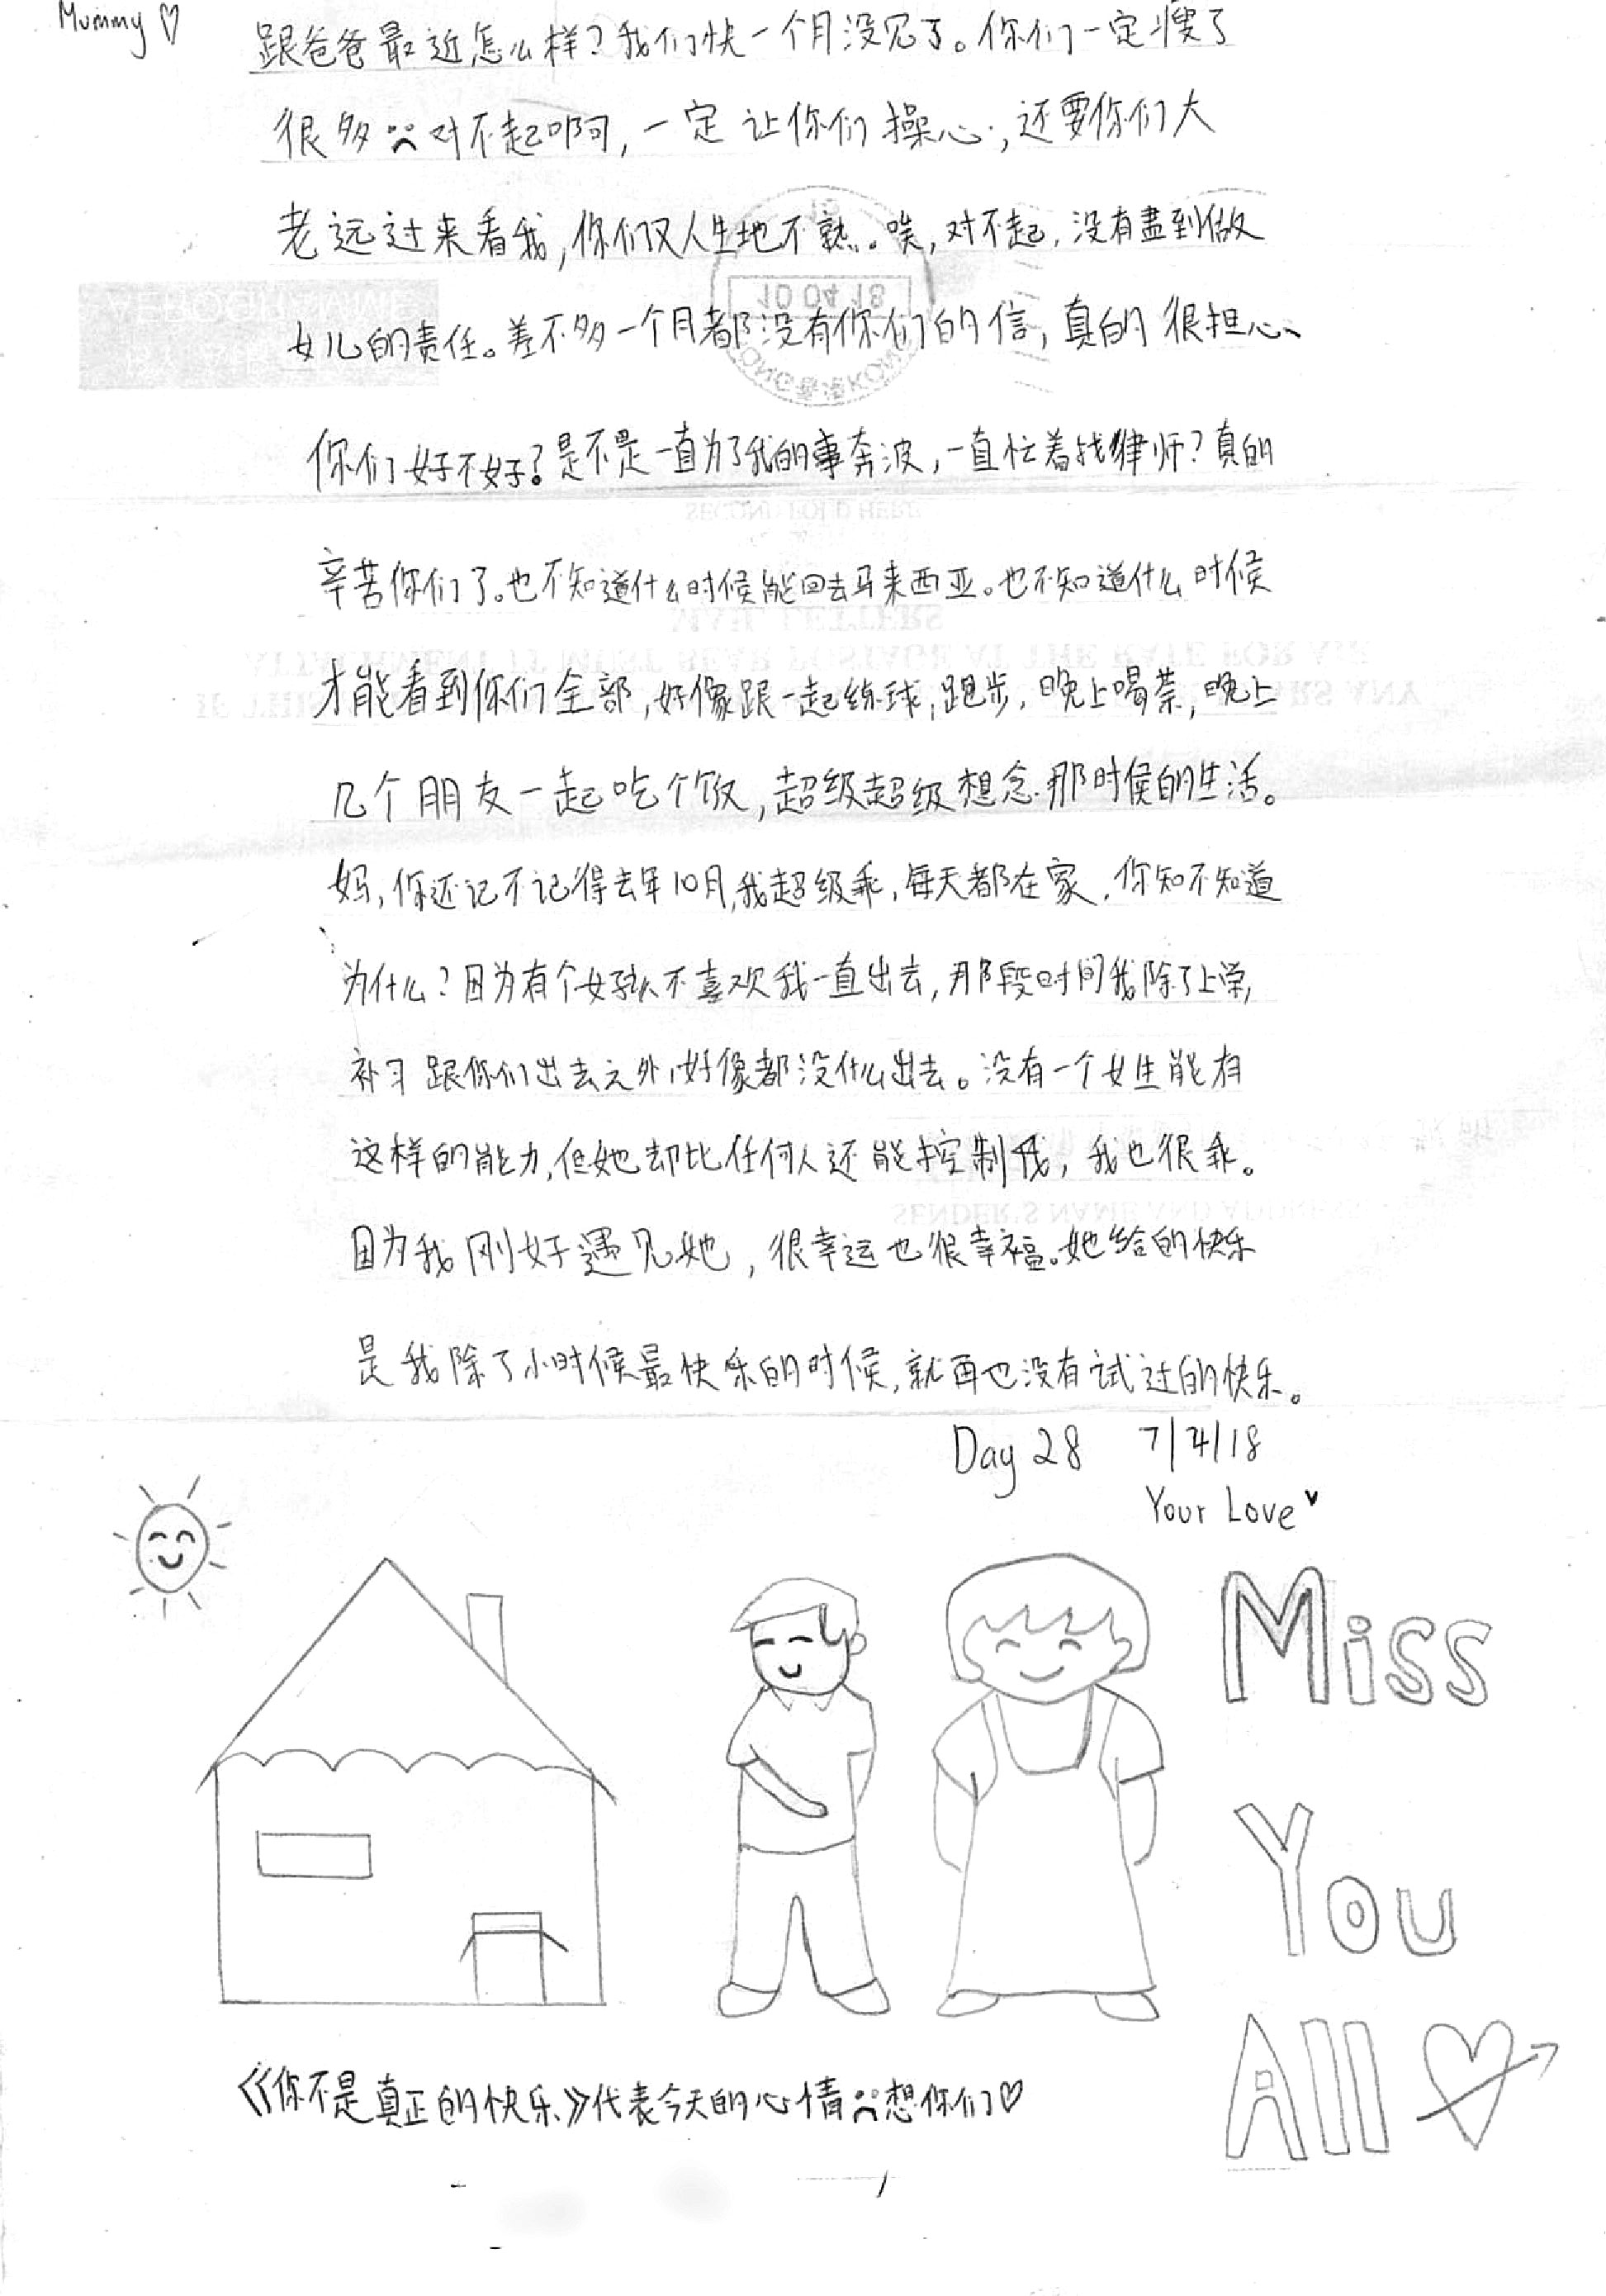 Mummy ♡
跟爸爸最近怎么样？我们快一个月没见了。你们一定瘦了
很多☹对不起啊，一定让你们操心，还要你们大
老远过来看我，你们又人生地不熟。唉，对不起，没有盡到做
女儿的责任。差不多一个月都没有你们的信，真的很担心、
你们好不好？是不是一直为了我的事奔波，一直忙着找律师？真的
辛苦你们了。也不知道什么时候能回去马来西亚。也不知道什么时候
才能看到你们全部，好像跟一起练球，跑步，晚上喝茶，晚上
几个朋友一起吃个饭，超级超级想念那时候的生活。
妈，你还记不记得去年10月，我超级乖，每天都在家，你知不知道
为什么？因为有个女孩不喜欢我一直出去，那段时间我除了上学，
补习跟你们出去之外，好像都没什么出去。没有一个女生能有
这样的能力，但她却比任何人还能控制我，我也很乖。
因为我刚好遇见她，很幸运也很幸福。她给的快乐
是我除了小时候最快乐的时候，就再也没有试过的快乐。
Day 28 7/4/18
Your Love♥
Miss
You
All ♡
《你不是真正的快乐》代表今天的心情☹想你们♡
10 04 18
HONG KONG 香港
SECOND FOLD HERE
MAIL LETTERS
ATTACHMENT IT MUST BEAR POSTAGE AT THE RATE FOR AIR
SENDER'S NAME AND ADDRESS